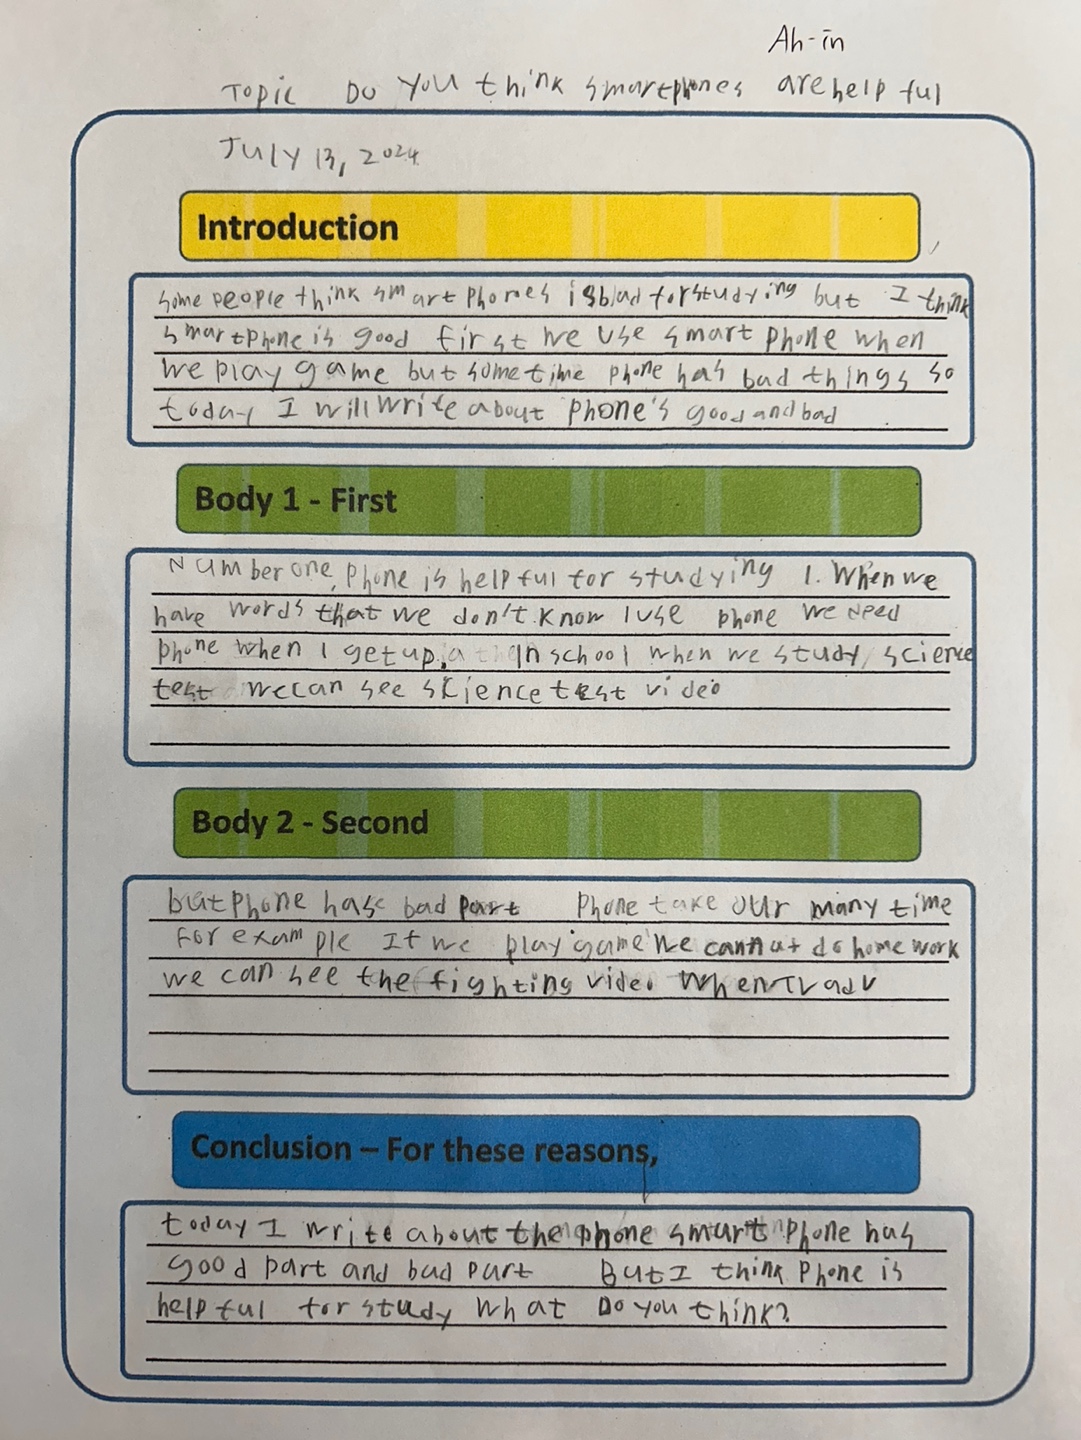 Ah-in
Topic Do You think smartphones are helpful
July 13, 2024
Introduction
some people think smart phones is bad for studying but I think
smartphone is good first we use smart phone when
we play game but sometime phone has bad things so
today I will write about phone's good and bad
Body 1 - First
Number one, phone is helpful for studying 1. When we
have words that we don't know I use phone we need
phone when I get up, in school when we study science
test we can see skience test video
Body 2 - Second
but phone hase bad part phone take our many time
For example If we play game we cannot do home work
we can see the fighting video When
Conclusion – For these reasons,
today I write about the phone smart phone has
good part and bad part But I think phone is
helpful for study what Do you think?